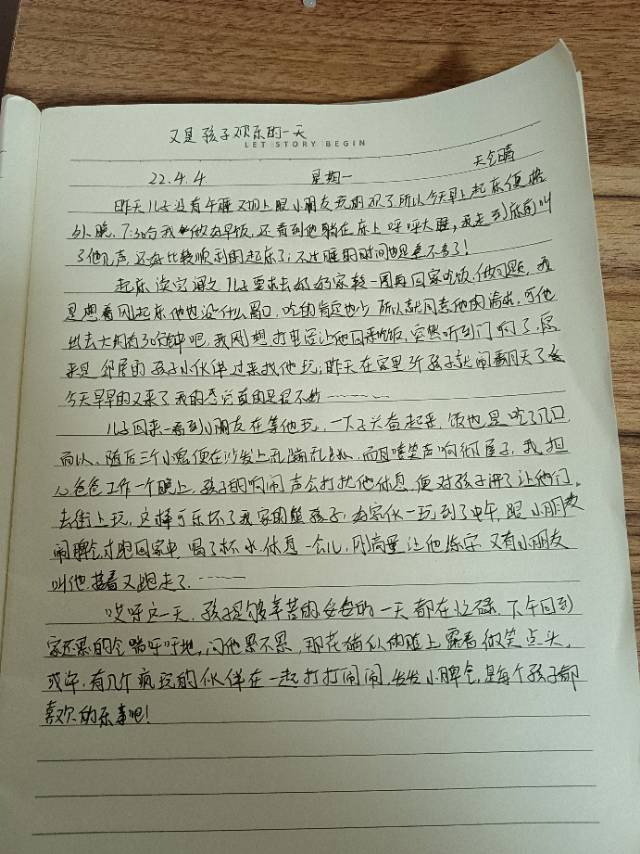 又是孩子欢乐的一天
LET STORY BEGIN
22.4.4 星期一 天气晴
昨天儿子没有午睡又切上跟小朋友玩的欢了所以今天早上起床便格
外晚,7:30台我做为早饭,还看到他躺在床上呼呼大睡,我走到床前叫
了他几声,还好比较顺利的起床了;不过睡的时间也是差不多了!
起床洗完漱之儿子要求去奶奶家转一圈再回家吃饭,他问题,我
思想着刚起床他也没什么胃口,吃的肯定也少所以就同意他的请求,可他
出去大约有30分钟吧,我刚想打电话让他回来吃饭,突然听到门响了,原
来是邻居的孩子小伙伴过来找他玩,昨天在家里所孩子就闹翻天了
今天早早的又来了我的感觉真的是很不妙………
儿子回来一看到小朋友在等他玩,一下子兴奋起来,饭也是吃了几口
而以,随后三个小家便在沙发上乱蹦乱,而且嘻笑声响彻屋子,我担
心爸爸工作一个晚上,孩子的响闹声会打扰他休息,便对孩子讲了让他们
去街上玩,这样可乐坏了我家的熊孩子,为家伙一玩到了中午,跟小朋友
闹脾气才跑回家中,喝了杯水休息一会儿,刚商量让他练字,又有小朋友
叫他,接着又跑走了………
哎呀这一天,孩子是够辛苦的,妥妥的一天都在忙碌,下午回到
家还累的气喘呼呼地,问他累不累,那花猫似的脸上露着微笑点头,
或许,有几个疯玩的伙伴在一起打打闹闹,发发小脾气,是每个孩子都
喜欢的乐事吧!